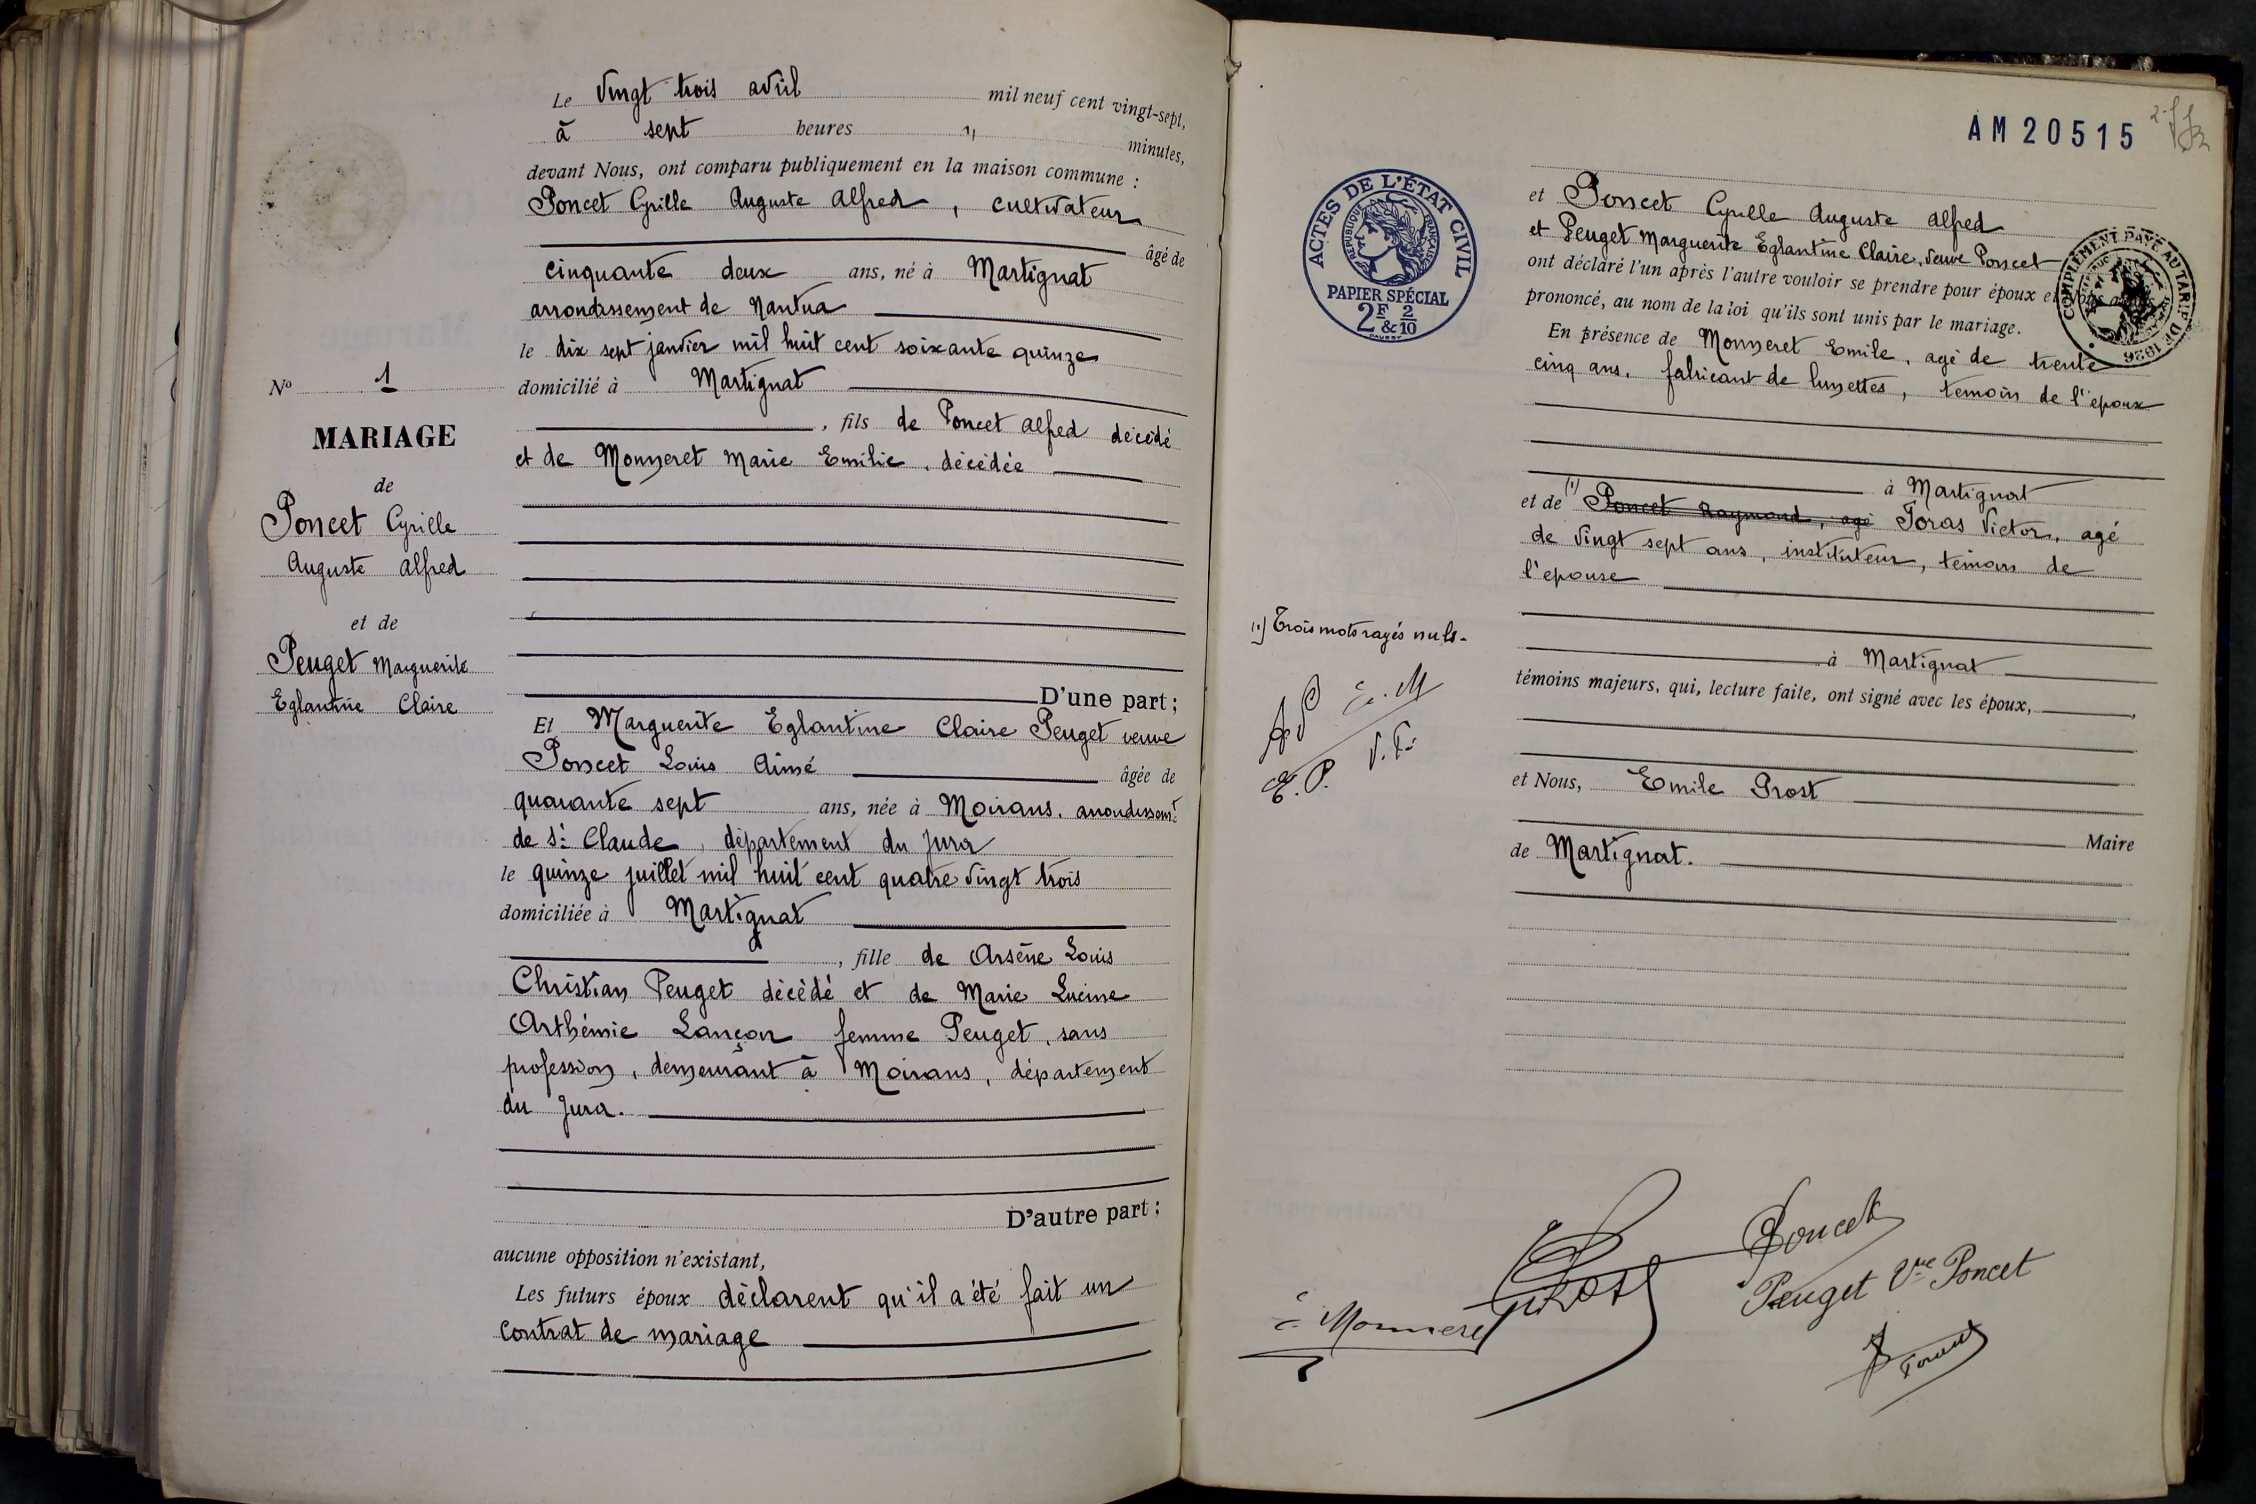 Le Vingt trois avril mil neuf cent vingt-sept,
à sept heures " minutes,
devant Nous, ont comparu publiquement en la maison commune :
Poncet Cyrille Auguste Alfred, cultivateur
âgé de
cinquante deux ans, né à Martignat
arrondissement de Nantua
le dix sept janvier mil huit cent soixante quinze
domicilié à Martignat
, fils de Poncet Alfred décédé
et de Monneret Marie Emilie, décédée
N° 1
MARIAGE
de
Poncet Cyrille
Auguste Alfred
et de
Peuget Marguerite
Eglantine Claire
D'une part ;
Et Marguerite Eglantine Claire Peuget veuve
Poncet Louis Aimé âgée de
quarante sept ans, née à Moirans, arrondissemt
de St Claude, département du Jura
le quinze juillet mil huit cent quatre vingt trois
domiciliée à Martignat
, fille de Arsène Louis
Christian Peuget décédé et de Marie Lucine
Arthémie Lançon femme Peuget, sans
profession, demeurant à Moirans, département
du Jura.
D'autre part :
aucune opposition n'existant,
Les futurs époux déclarent qu'il a été fait un
contrat de mariage
AM 20515
ACTES DE L'ÉTAT CIVIL
RÉPUBLIQUE FRANÇAISE
PAPIER SPÉCIAL
2F & 2/10
COMPLÉMENT PAYÉ AU TARIF DE 1926
et Poncet Cyrille Auguste Alfred
et Peuget Marguerite Eglantine Claire, veuve Poncet
ont déclaré l'un après l'autre vouloir se prendre pour époux et Nous avons
prononcé, au nom de la loi qu'ils sont unis par le mariage.
En présence de Monneret Emile, agé de trente
cinq ans, fabricant de lunettes, temoin de l'epoux
à Martignat
et de (1) Poncet Raymond, agé Toras Victor, agé
de vingt sept ans, instituteur, témoin de
l'epouse
à Martignat
témoins majeurs, qui, lecture faite, ont signé avec les époux,
et Nous, Emile Prost
Maire
de Martignat.
(1) Trois mots rayés nuls.
E. M
E. P.
Prost
Poncet
Peuget Vve Poncet
E. Monneret